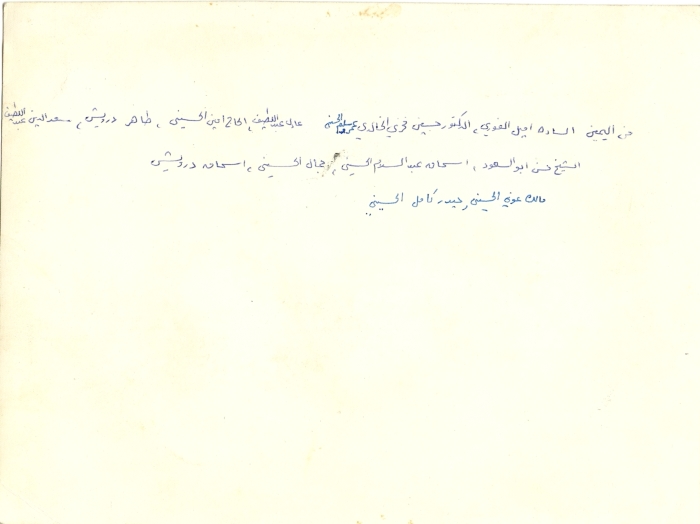 من اليمين السادة اميل الغوري، الدكتور حسين فخري الخالدي عادل عبد اللطيف، الحاج امين الحسيني، طاهر درويش، سعد الدين عبد اللطيف
الشيخ حسن ابو السعود، اسحاق عبد السلام الحسيني، وجمال الحسيني، اسحاق درويش
مالك عوني الحسيني، حيدر كامل الحسيني